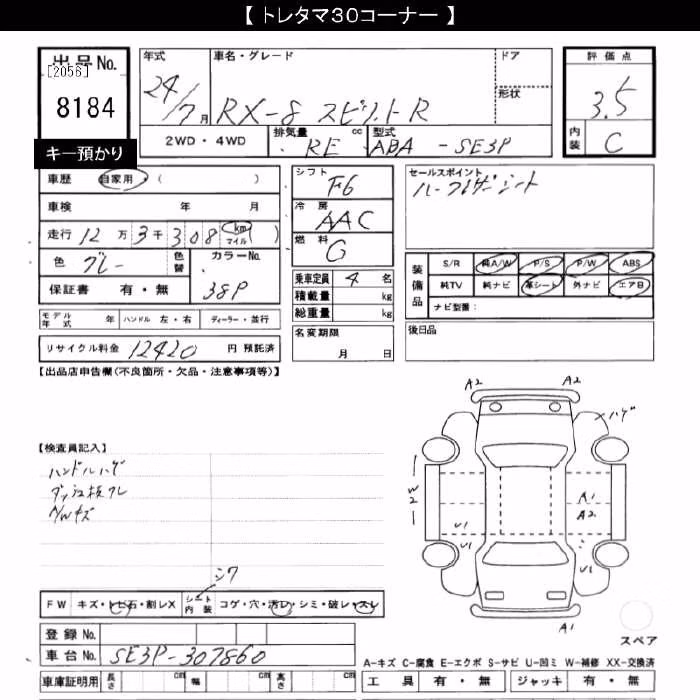 【 トレタマ30コーナー 】
出品No. [2056] 8184
キー預かり
年式 24/7月
車名・グレード RX-8 スピリットR
ドア
形状
評価点 3.5
内装 C
2WD・4WD 排気量 RE cc 型式 ABA - SE3P
車歴 自家用・( )
車検 年 月
走行 12万3千308 km マイル )
色 グレー 色替 カラーNo. 38P
保証書 有・無
モデル年式 年 ハンドル 左・右 ディーラー・並行
リサイクル料金 12420 円 預託済
シフト F6
冷房 AAC
燃料 G
乗車定員 4 名
積載量 kg
総重量 kg
名変期限 月 日
セールスポイント
ハーフレザーシート
装備品 S/R 純A/W P/S P/W ABS
純TV 純ナビ 革シート 外ナビ エアB
ナビ型番:
後日品
【出品店申告欄(不良箇所・欠品・注意事項等)】
【検査員記入】
ハンドルハゲ
A/Wキズ
シワ
FW キズ・トビ石・割レX シート内装 コゲ・穴・汚レ・シミ・破レ・スレ
登録No.
車台No. SE3P-307860
車庫証明用 長さ cm 幅 cm 高さ cm
A2 A2
ハゲ
W2
A1
A2
U1 U1
U1
A1
スペア
A-キズ C-腐食 E-エクボ S-サビ U-凹ミ W-補修 XX-交換済
工具 有・無 ジャッキ 有・無